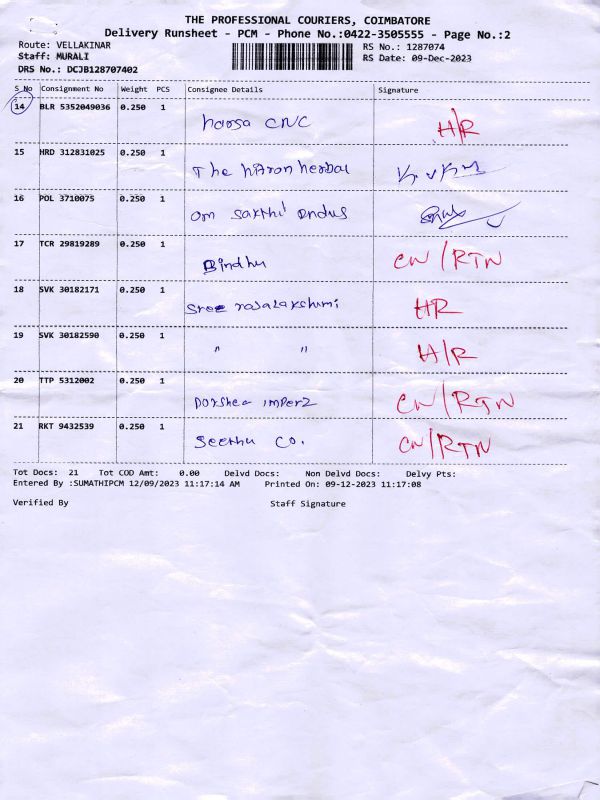 THE PROFESSIONAL COURIERS, COIMBATORE
Delivery Runsheet - PCM - Phone No.:0422-3505555 - Page No.:2
Route: VELLAKINAR RS No.: 1287074
Staff: MURALI RS Date: 09-Dec-2023
DRS No.: DCJB128707402
S_No Consignment No Weight PCS Consignee Details Signature
14 BLR 5352049036 0.250 1 harsa CNC H/R
15 HRD 312831025 0.250 1 The hitron herbal
16 POL 3710075 0.250 1 om sakthi indus
17 TCR 29819289 0.250 1 Bindhu CN/RTN
18 SVK 30182171 0.250 1 Sree rajalakshmi HR
19 SVK 30182590 0.250 1 " " H/R
20 TTP 5312002 0.250 1 CN/RTN
21 RKT 9432539 0.250 1 Seethu Co. CN/RTN
Tot Docs: 21 Tot COD Amt: 0.00 Delvd Docs: Non Delvd Docs: Delvy Pts:
Entered By :SUMATHIPCM 12/09/2023 11:17:14 AM Printed On: 09-12-2023 11:17:08
Verified By Staff Signature